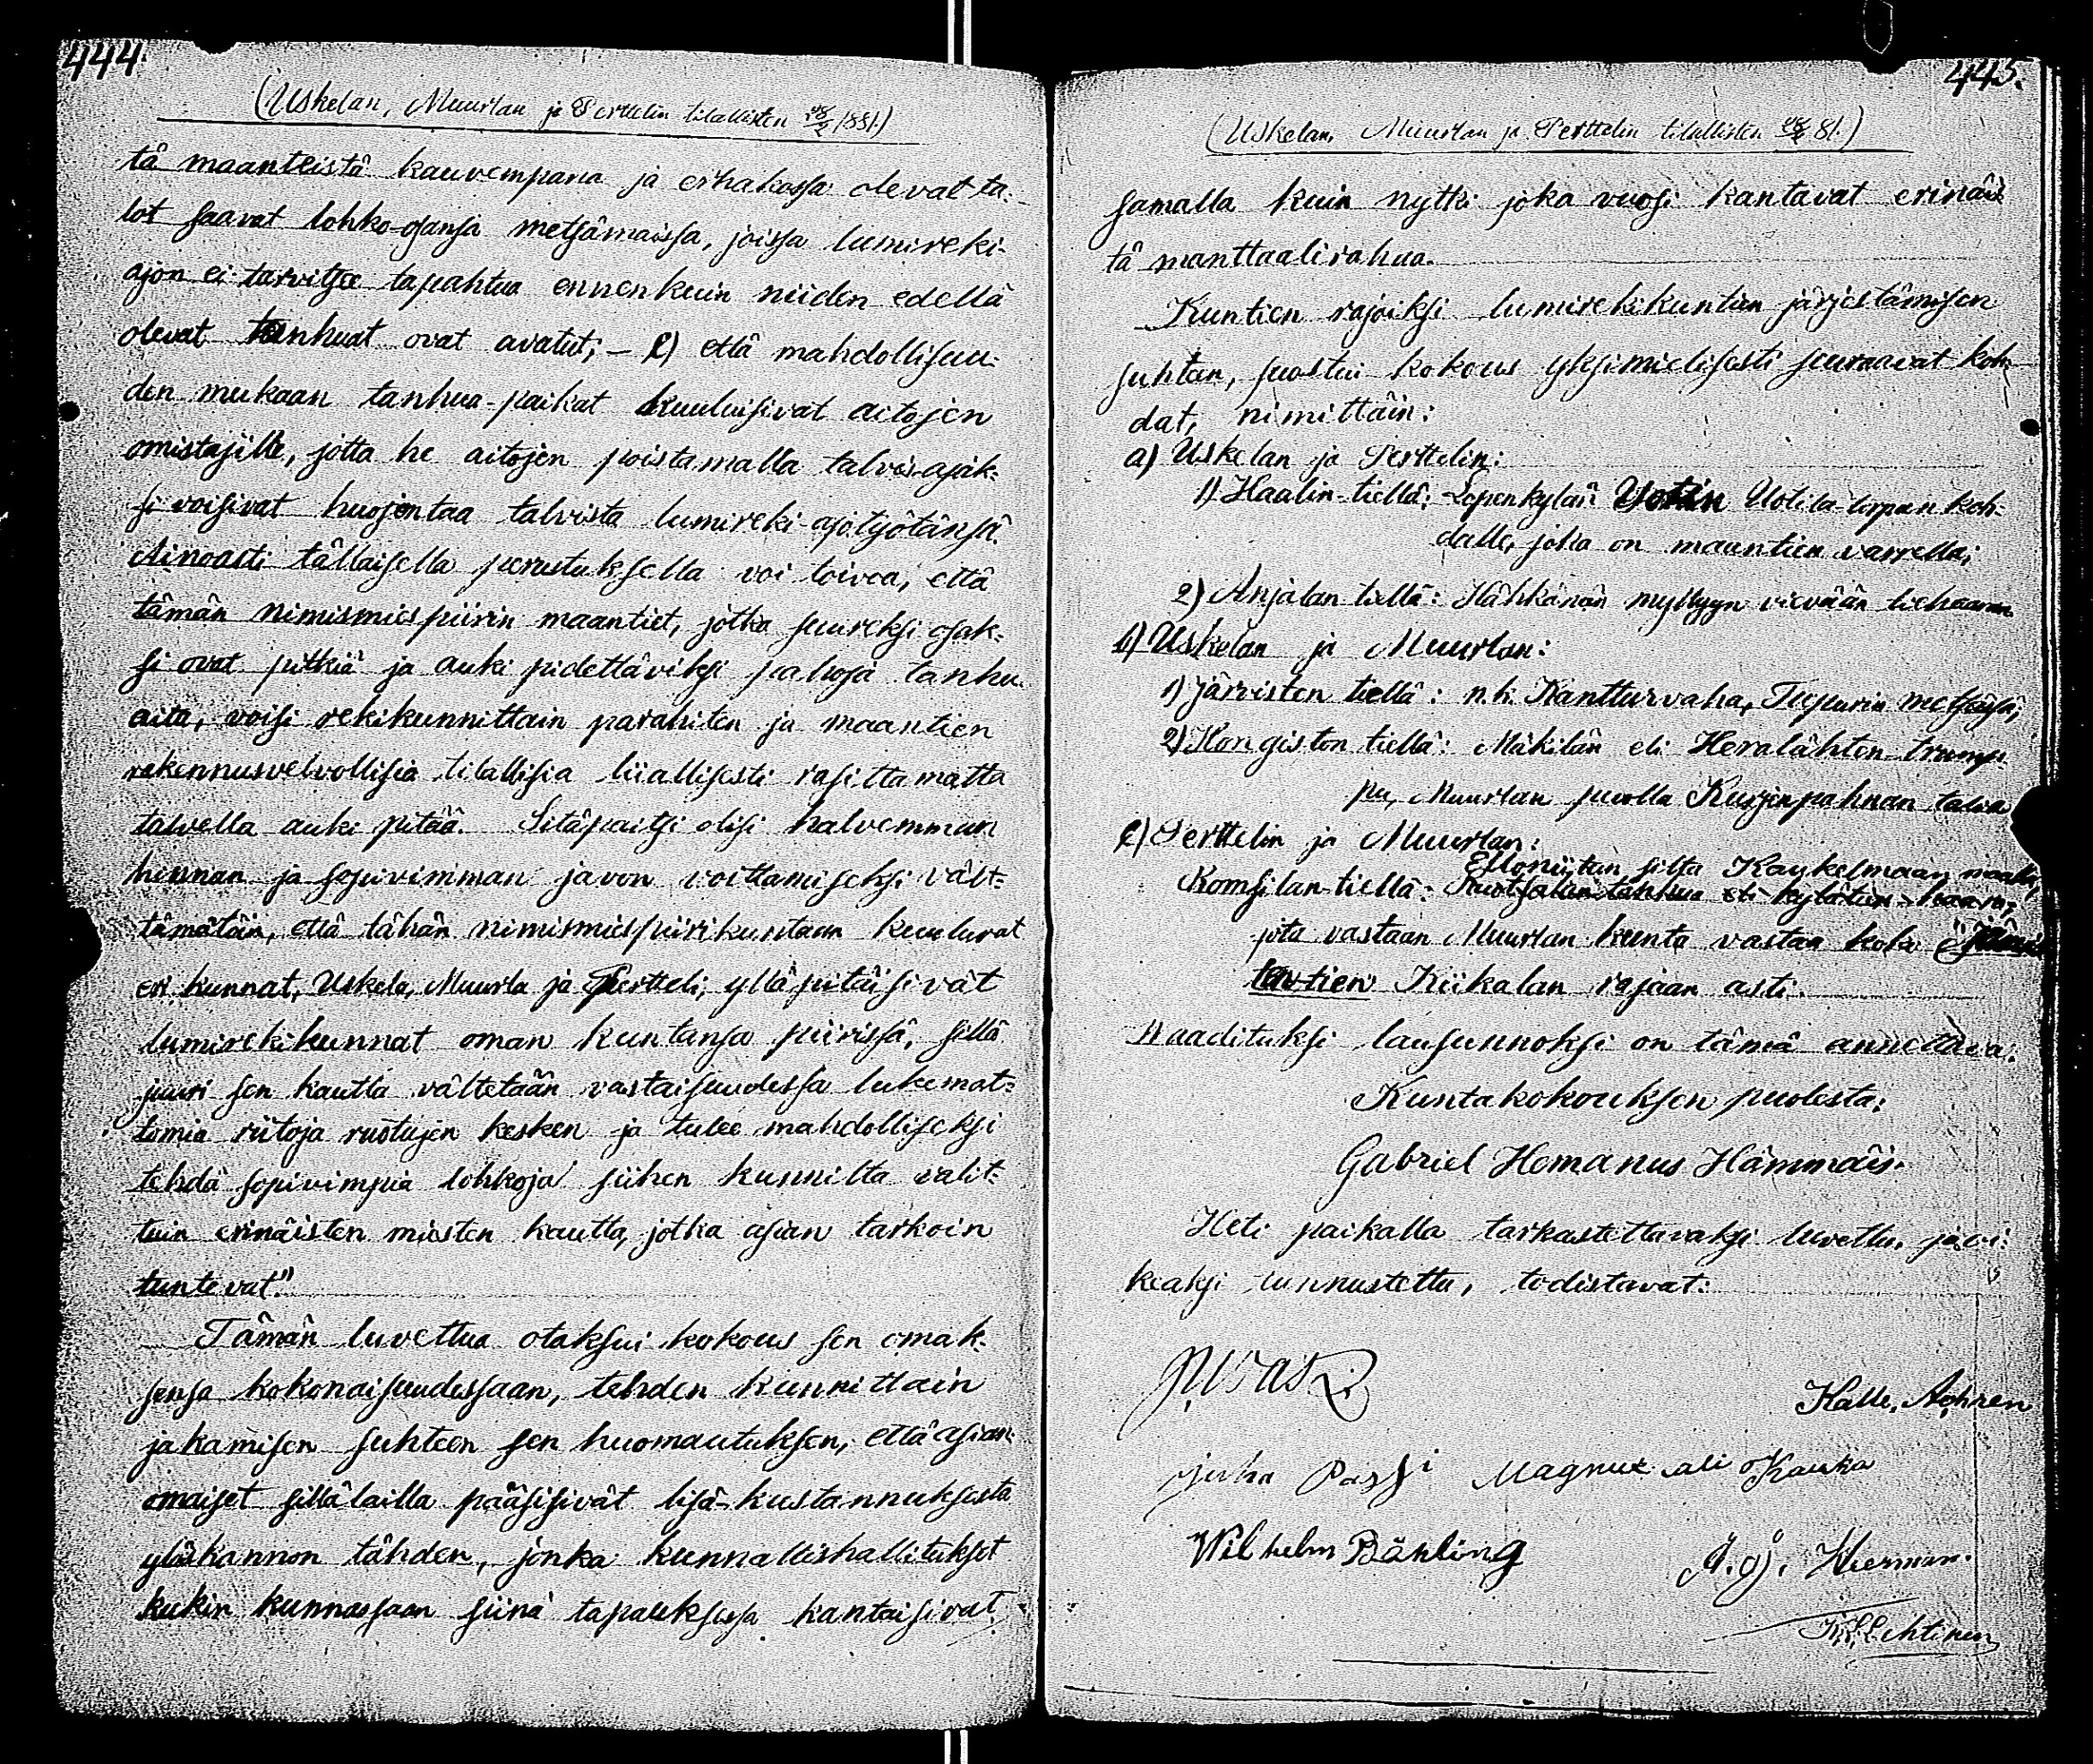 444.
(Uskelan, Muurlan ja Perttelin tilallisten 28/2 1881.)
tä maanteistä kauvempana ja erhakossa olevat ta-
lot saavat lohko-osansa metsämaissa, joissa lumireki-
ajon ei tarvitse tapahtua ennenkuin niiden edellä
olevat tanhuat ovat avatut; – c) että mahdollisuu-
den mukaan tanhua-paikat kuuluisivat aitojen
omistajille, jotta he aitojen poistamalla talvis-ajak-
si voisivat huojentaa talvista lumireki-ajotyötänsä.
Ainoasti tällaisella perustuksella voi toivoa, että
tämän nimismiespiirin maantiet, jotka suureksi osak-
si ovat pitkiä ja auki pidettäviksi pahoja tanhu-
aita, voisi rekikunnittain parahiten ja maantien
rakennusvelvollisia tilallisia liiallisesti rasittamatta
talvella auki pitää. Sitäpaitsi olisi halvemman
hinnan ja sopivimman javon voittamiseksi vält-
tämätöin, että tähän nimismiespiirikuntaan kuuluvat
eri kunnat, Uskela, Muurla ja Pertteli, ylläpitäisivät
lumirekikunnat oman kuntansa piirissä, sillä
juuri sen kautta vältetään vastaisuudessa lukemat-
tomia riitoja ruotujen kesken ja tulee mahdolliseksi
tehdä sopivimpia lohkoja siihen kunnilta valit-
tuin erinäisten miesten kautta, jotka asian tarkoin
tuntevat."
Tämän luvettua otaksui kokous sen omak-
sensa kokonaisuudessaan, tehden kunnittain
jakamisen suhteen sen huomautuksen, että asian-
omaiset sillä lailla pääsisivät lisä-kustannuksesta
yläskannon tähden, jonka kunnallishallitukset
kukin kunnassaan siinä tapauksessa kantaisivat
445.
(Uskelan, Muurlan ja Perttelin tilallisten 28/2 81.)
samalla kuin nytki joka vuosi kantavat erinäis-
tä manttaalirahaa.
Kuntien rajoiksi lumirekikuntien järjestämisen
suhteen, suostui kokous yksimielisesti seuraavat koh-
dat, nimittäin:
a) Uskelan ja Perttelin:
1) Haalin tiellä: Lepenkylän Uotila-torpan koh-
dalle, joka on maantien varrella;
2) Anjalan tiellä: Hähkänän myllyyn vievään tiehaaraan
b) Uskelan ja Muurlan:
1) Järvisten tiellä: n.k. Kantturvaha, Tupurin metsässä;
2) Hongiston tiellä: Mäkilän eli Heralähten trump-
pu, Muurlan puolla Kurjenpahnan taloa
c) Perttelin ja Muurlan:
Ellonniitun silta Kaukelmaan maalla,
Romsilan-tiellä: Ruotsalan tanhua eli kylätien-haara;
jota vastaan Muurlan kunta vastaa koko
tavtien Kiikalan rajaan asti.
Vaadituksi lausunnoksi on tämä annettava.
Kuntakokouksen puolesta:
Gabriel Homanus Hämmäis.
Heti paikalla tarkastettavaksi luvettu, ja oi-
keaksi tunnustettu, todistavat:
Kalle
Juha Passi Magnus
Wilhelm Bähling
K. Lehtinen